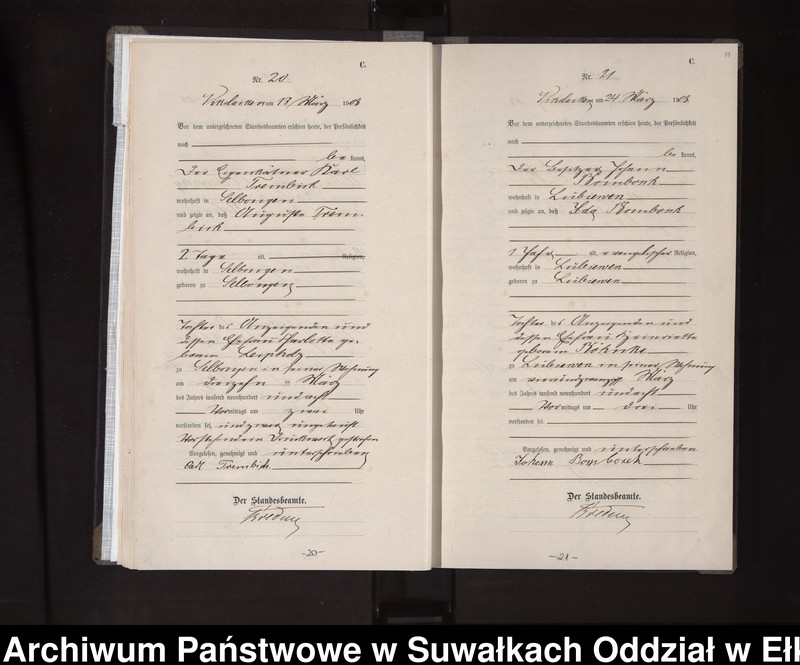 C.
Nr. 20
am 13 März 1908
Vor dem unterzeichneten Standesbeamten erschien heute, der Persönlichkeit
nach
be kannt,
Der Eigenkätner Karl
Trembick
wohnhaft in Selbongen
und zeigte an, daß Auguste Trem-
bick
2 Tage alt, Religion,
wohnhaft in Selbongen
geboren zu Selbongen
Tochter des Anzeigenden und
dessen Ehefrau Charlotte ge-
borenen
zu Selbongen in seiner Wohnung
am dreizehn ten März
des Jahres tausend neunhundert und acht
Vormittags um zwei Uhr
verstorben sei, und zwar
Vorstehendem Druckwort gestrichen
Vorgelesen, genehmigt und unterschrieben
Trembick
Der Standesbeamte.
-20-
C.
Nr. 21
am 24 März 1908
Vor dem unterzeichneten Standesbeamten erschien heute, der Persönlichkeit
nach
be kannt,
Der Besitzer Johann
wohnhaft in Lubiewen
und zeigte an, daß Ida
alt, evangelischer Religion,
wohnhaft in Lubiewen
geboren zu Lubiewen
Tochter des Anzeigenden und
dessen Ehefrau Henriette
geborenen
zu Lubiewen in seiner Wohnung
am vierundzwanzig März
des Jahres tausend neunhundert und acht
Vormittags um drei Uhr
verstorben sei.
Vorgelesen, genehmigt und unterschrieben
Johann
Der Standesbeamte.
-21-
Archiwum Państwowe w Suwałkach Oddział w Ełk